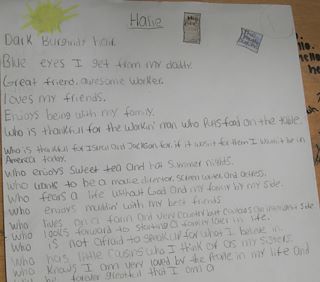 Halie
Dark Burgundy hair.
Blue eyes I get from my daddy.
Great friend, awesome worker.
Loves my friends.
Enjoys being with my family.
Who is thankful for the workin' man who puts food on the table.
Who is thankful for Israel and Jackson for if it wasn't for them I wouldn't be in
America today.
Who enjoys sweet tea and hot summer nights.
Who wants to be a movie director, screen writer and actress.
Who fears a life without God and my family by my side.
Who enjoys muddin' with my best friends
Who lives on a farm and very country but contains an side
Who looks forward to starting a family later in life.
Who is not afraid to speak up for what I believe in.
Who has little cousins who I think of as my sisters.
Who knows I am very loved by the people in my life and
forever greatful that I am a